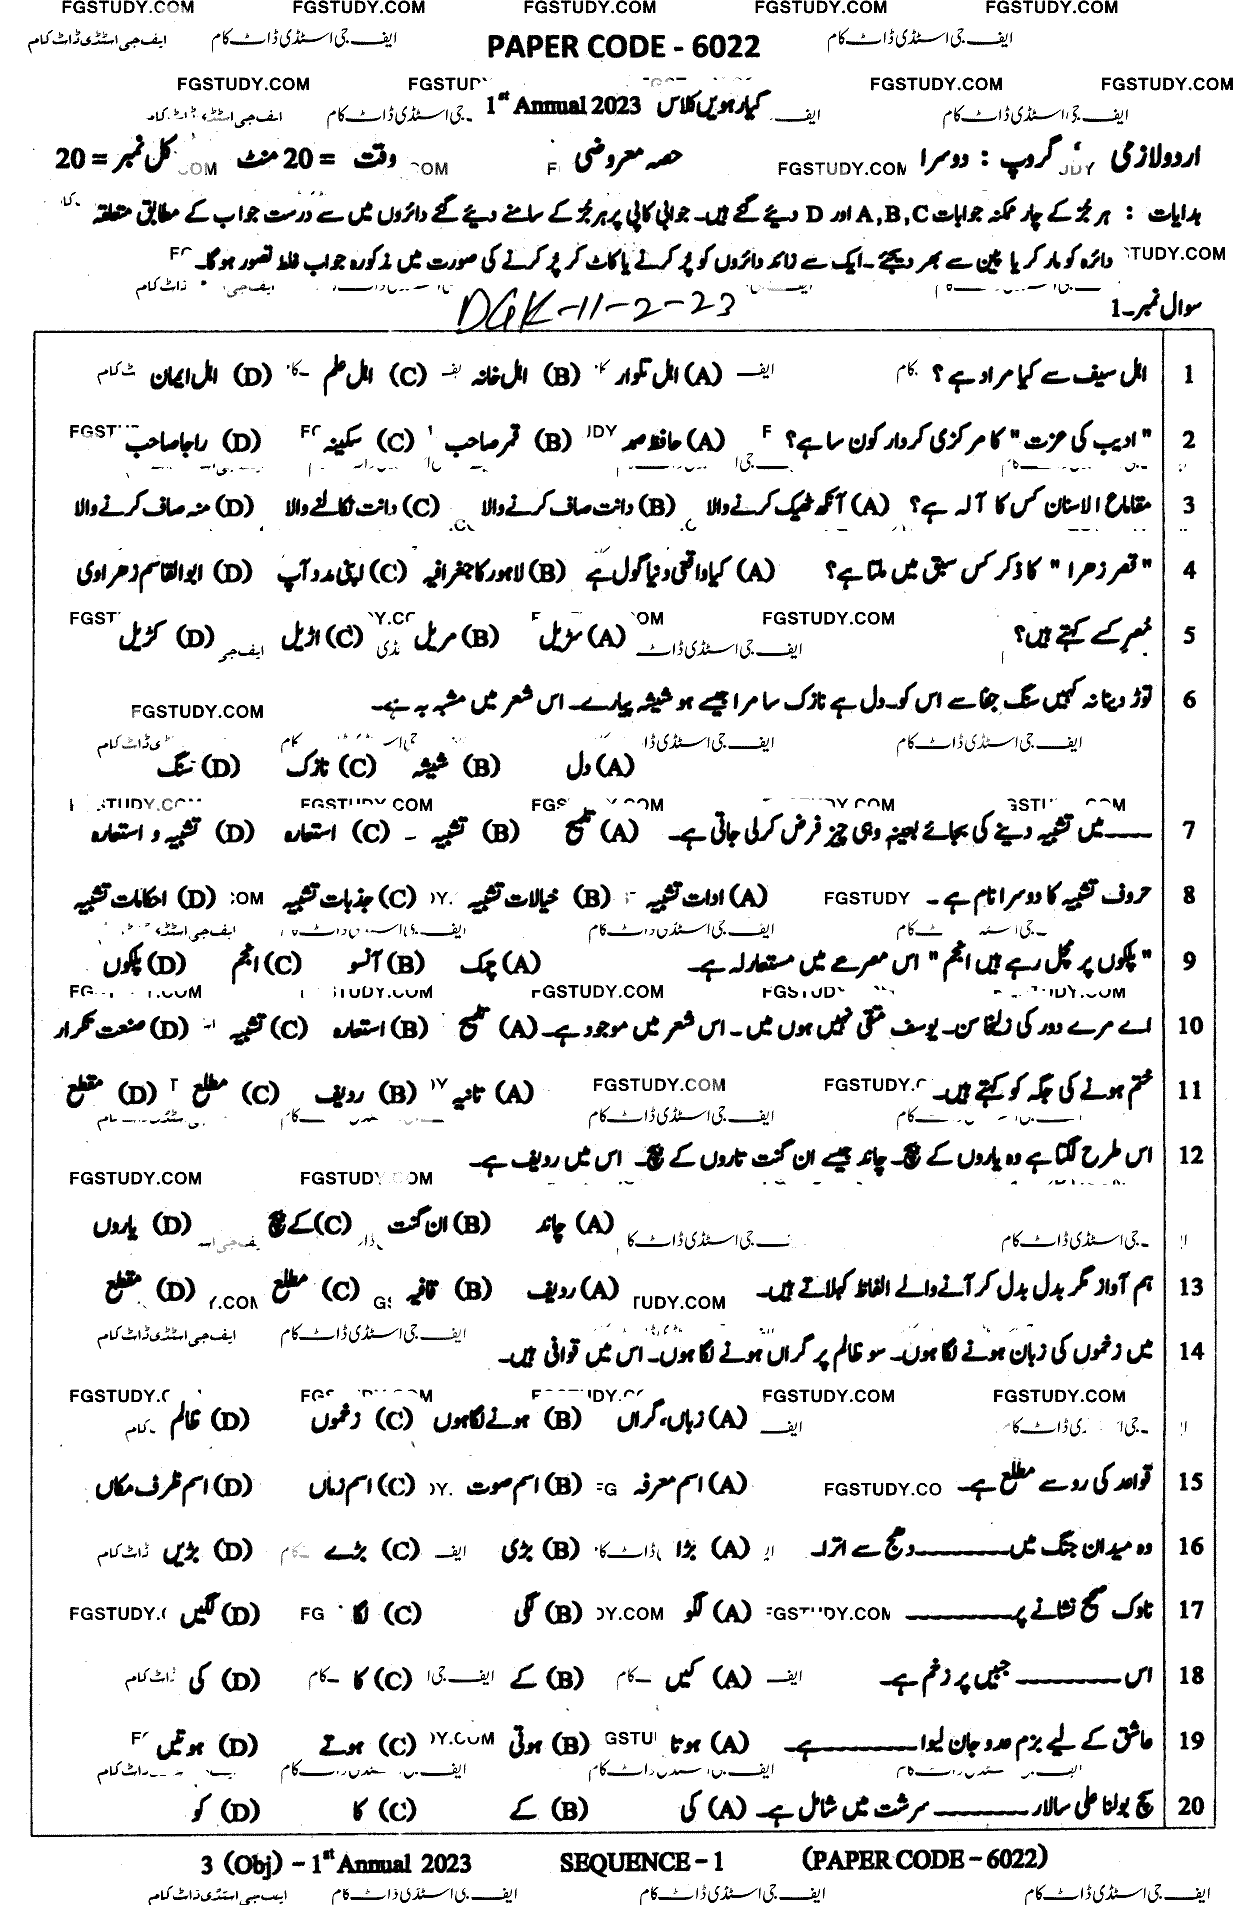 FGSTUDY.COM FGSTUDY.COM FGSTUDY.COM FGSTUDY.COM FGSTUDY.COM
ایف جی اسٹڈی ڈاٹ کام PAPER CODE - 6022 ایف جی اسٹڈی ڈاٹ کام ایف جی اسٹڈی ڈاٹ کام
FGSTUDY.COM FGSTUDY.COM FGSTUDY.COM
گیارہویں کلاس 1st Annual 2023
اردو لازمی گروپ : دوسرا حصہ معروضی وقت = 20 منٹ کل نمبر = 20
ہدایات : ہر جُز کے چار ممکنہ جوابات A,B,C اور D دیئے گئے ہیں۔ جوابی کاپی پر ہر جُز کے سامنے دیئے گئے دائروں میں سے درست جواب کے مطابق متعلقہ
دائرہ کو مارکر یا پین سے بھر دیجئے۔ ایک سے زائد دائروں کو پُر کرنے یا کاٹ کر پُر کرنے کی صورت میں مذکورہ جواب غلط تصور ہوگا۔
سوال نمبر۔1
DGK-11-2-23
1 اہل سیف سے کیا مراد ہے؟ (A) اہل تلوار (B) اہل خانہ (C) اہل علم (D) اہل ایمان
2 "ادیب کی عزت" کا مرکزی کردار کون سا ہے؟ (A) حافظ صمد (B) قمر صاحب (C) سکینہ (D) راجا صاحب
3 مقلاع الاسنان کس کا آلہ ہے؟ (A) آنکھ ٹھیک کرنے والا (B) دانت صاف کرنے والا (C) دانت نکالنے والا (D) منہ صاف کرنے والا
4 "قصر زھرا" کا ذکر کس سبق میں ملتا ہے؟ (A) کیا واقعی دنیا گول ہے (B) لاہور کا جغرافیہ (C) اپنی مدد آپ (D) ابوالقاسم زھراوی
5 خچر کسے کہتے ہیں؟ (A) سڑیل (B) مریل (C) اڑیل (D) کڑیل
6 توڑ دینا نہ کہیں سنگ جفا سے اس کو۔ دل ہے نازک سا مرا جیسے ہو شیشہ پیارے۔ اس شعر میں مشبہ بہ ہے۔
(A) دل (B) شیشہ (C) نازک (D) سنگ
7 ——میں تشبیہ دینے کی بجائے بعینہ وہی چیز فرض کرلی جاتی ہے۔ (A) تلمیح (B) تشبیہ (C) استعارہ (D) تشبیہ و استعارہ
8 حروف تشبیہ کا دوسرا نام ہے۔ (A) ادات تشبیہ (B) خیالات تشبیہ (C) جذبات تشبیہ (D) احکامات تشبیہ
9 "پلکوں پر مچل رہے ہیں انجم" اس مصرعے میں مستعارلہ ہے۔ (A) چمک (B) آنسو (C) انجم (D) پلکوں
10 اے مرے دور کی زلیخا سن۔ یوسف متقی نہیں ہوں میں۔ اس شعر میں موجود ہے۔ (A) تلمیح (B) استعارہ (C) تشبیہ (D) صنعت تکرار
11 ختم ہونے کی جگہ کو کہتے ہیں۔ (A) قافیہ (B) ردیف (C) مطلع (D) مقطع
12 اس طرح لگتا ہے وہ یاروں کے بیچ۔ چاند جیسے ان گنت تاروں کے بیچ۔ اس میں ردیف ہے۔
(A) چاند (B) ان گنت (C) کے بیچ (D) یاروں
13 ہم آواز مگر بدل بدل کر آنے والے الفاظ کہلاتے ہیں۔ (A) ردیف (B) قافیہ (C) مطلع (D) مقطع
14 میں زخموں کی زبان ہونے لگا ہوں۔ سو ظالم پر گراں ہونے لگا ہوں۔ اس میں قوافی ہیں۔
(A) زباں،گراں (B) ہونے لگا ہوں (C) زخموں (D) ظالم
15 قواعد کی رو سے مطلع ہے۔ (A) اسم معرفہ (B) اسم صوت (C) اسم زماں (D) اسم ظرف مکاں
16 وہ میدان جنگ میں ——— دھج سے اترا۔ (A) بڑا (B) بڑی (C) بڑے (D) بڑیں
17 ناوک صحیح نشانے پر ——— (A) لگو (B) لگی (C) لگا (D) لگیں
18 اس ——— جبیں پر زخم ہے۔ (A) کیں (B) کے (C) کا (D) کی
19 عاشق کے لیے بزم عدو جان لیوا ——— ہے۔ (A) ہوتا (B) ہوتی (C) ہوتے (D) ہوتیں
20 سچ بولنا علی سالار ——— سرشت میں شامل ہے۔ (A) کی (B) کے (C) کا (D) کو
3 (Obj) - 1st Annual 2023 SEQUENCE - 1 (PAPER CODE - 6022)
ایف جی اسٹڈی ڈاٹ کام ایف جی اسٹڈی ڈاٹ کام ایف جی اسٹڈی ڈاٹ کام ایف جی اسٹڈی ڈاٹ کام